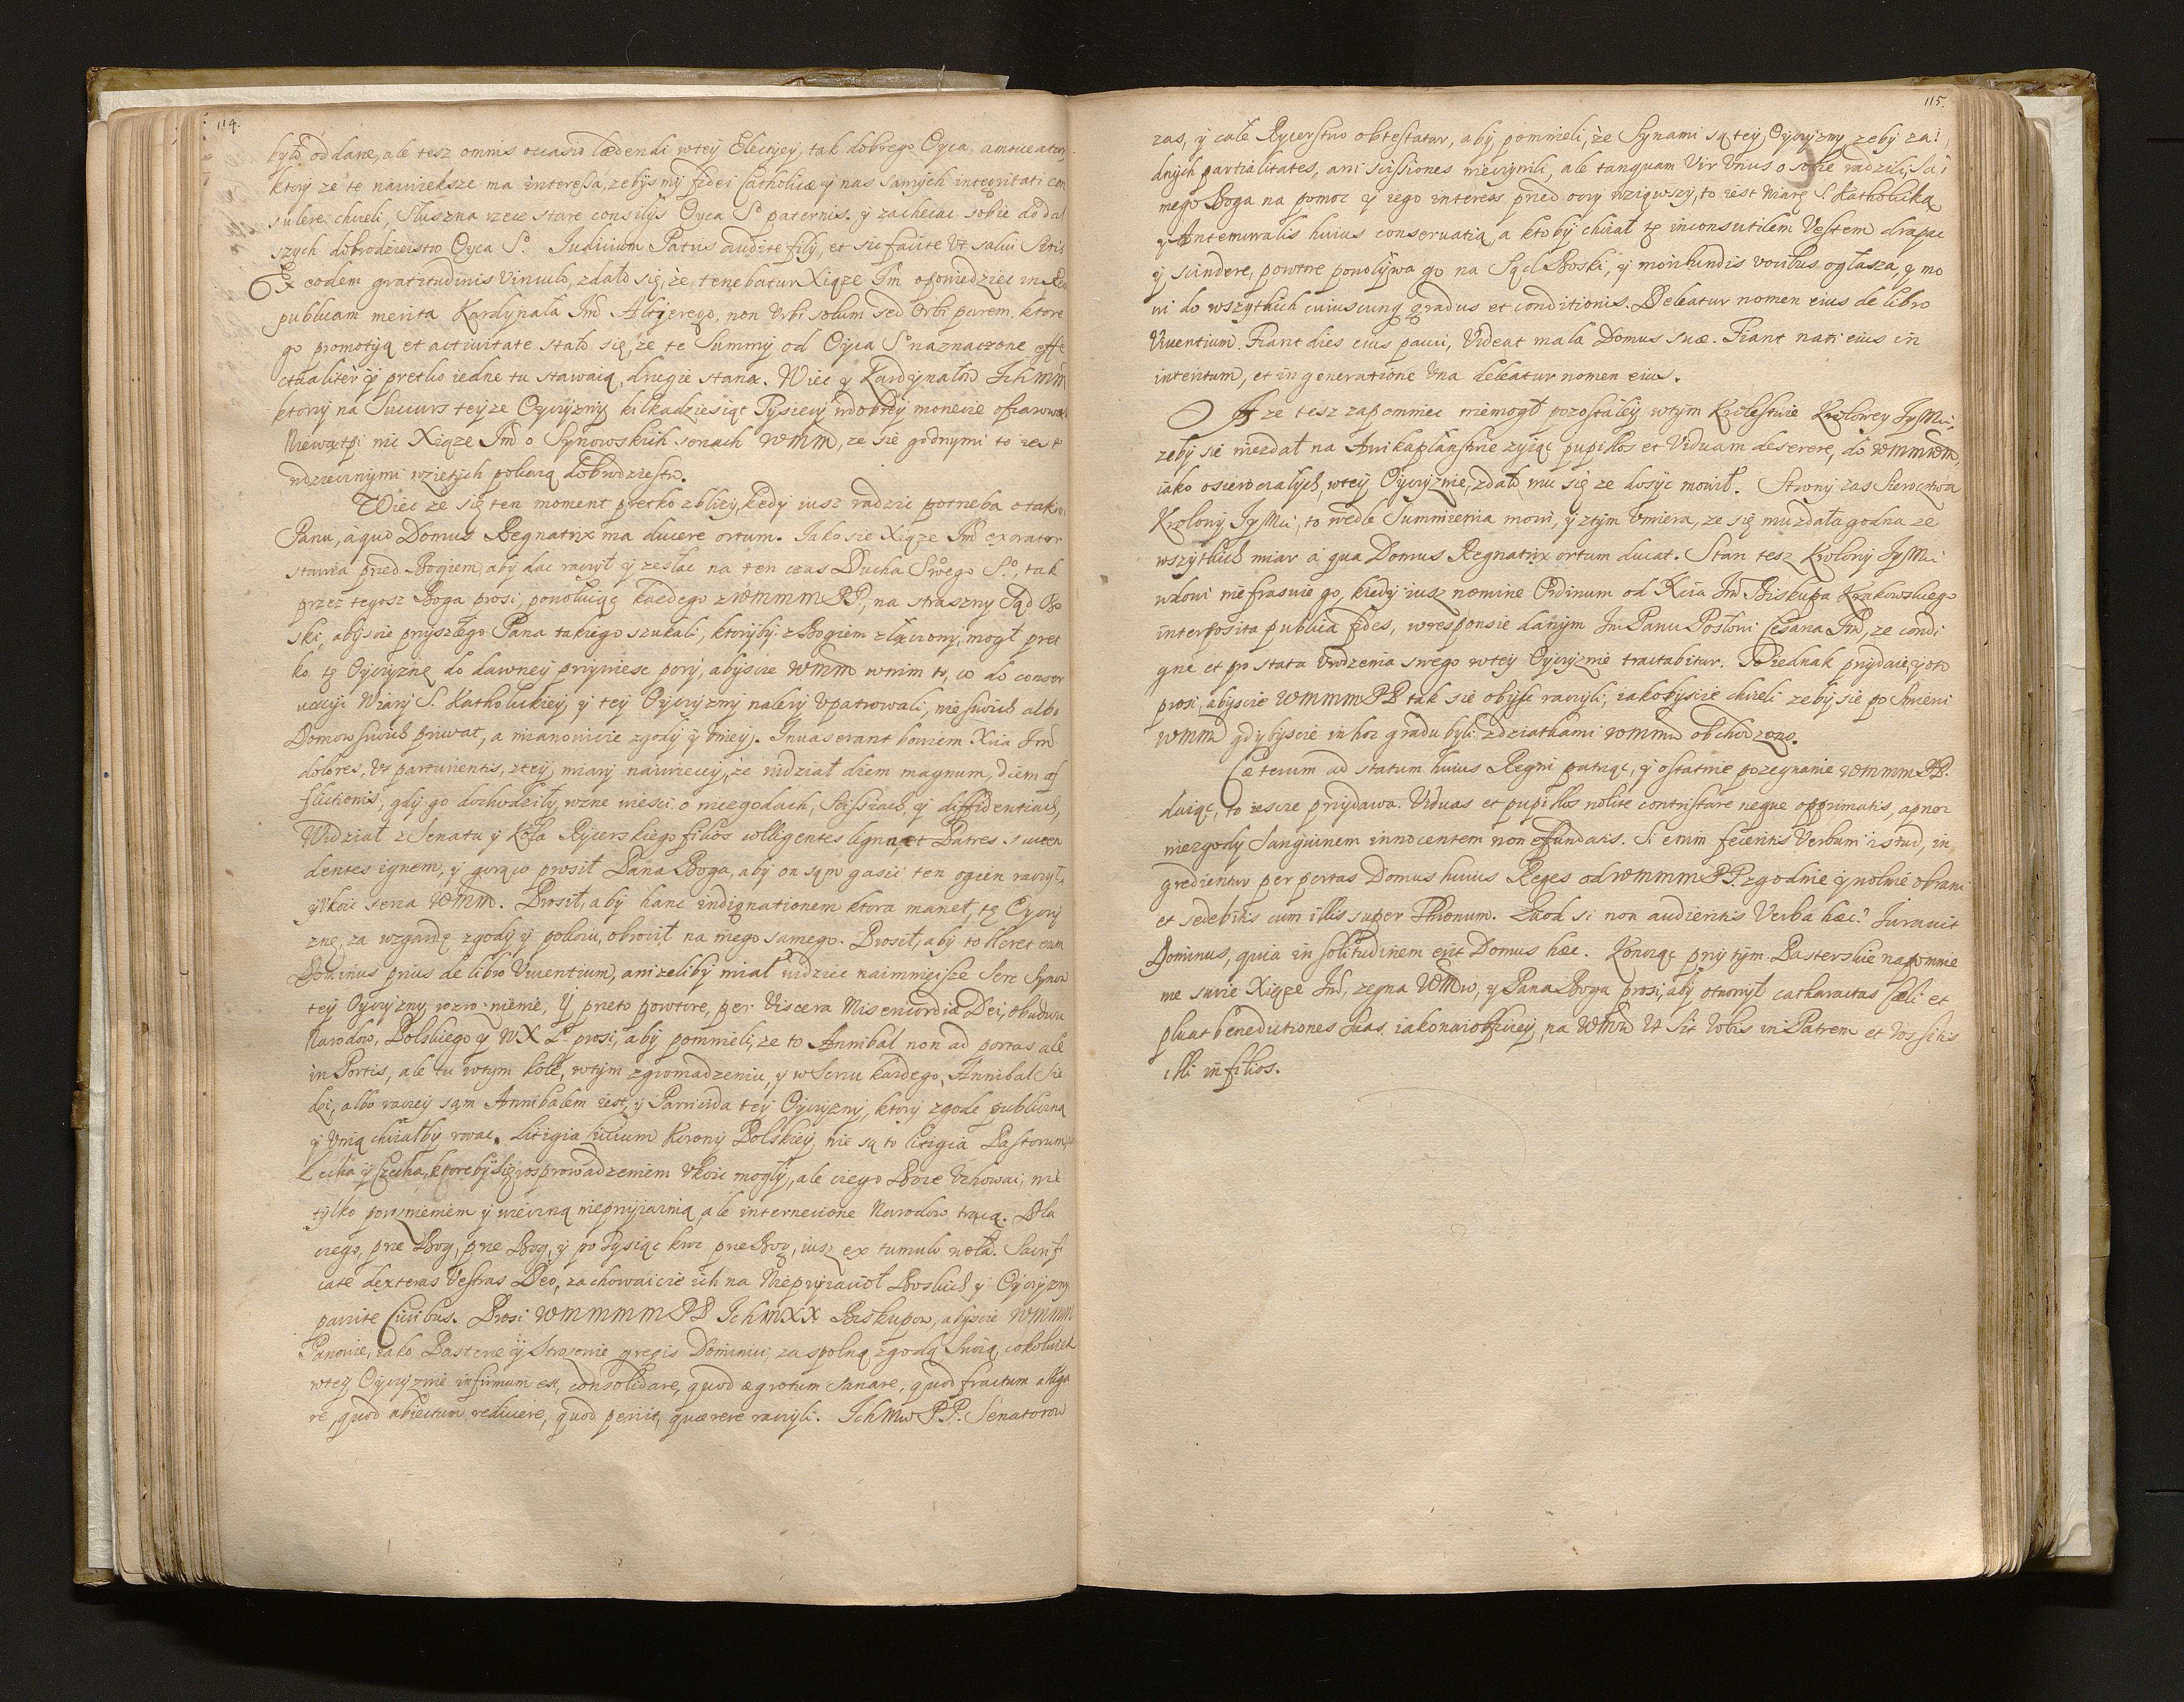 114.
było oddane, ale tesz omnis occasio lædendi wteÿ Electÿeÿ, tak dobrego Oyca amoueatur,
ktorÿ ze te nawieksze ma interessa, zebÿsmÿ fidei Catholicæ ÿ nas samÿch integritati con
sulere chcieli, Słuszna rzecz stare consilÿs Oyca S° paternis. ÿ zachecac sobie do dal
szych dobrodzieistw Oyca S°. Judicium Patris audite filÿ, et sic facite Vt salui Sitis
Ex eodem gratitudinis Vinculo, zdało się, że tenebatur Xiąze Jm̃ opowiedziec in Rem
publicam merita Kardÿnała Jm̃ Altÿerego, non Vrbi solum sed Orbi parem, ktore
go promotÿą et actiuitate stało się, ze te Summÿ od Oyca S° naznaczone effe
ctualiter ÿ prethko iedne tu stawaią, drugie staną. Wiec ÿ Kardÿnałow Ich mm
ktorzÿ na Succurs teÿze Oyczÿznÿ kilkadziesiąt Tÿsiecÿ wdobreÿ monecie ofiarowali
Niewątpi nic Xiąze Jm̃ o Sÿnowskich sercach WMM, ze sie godnymi to iest
wdziecznÿmi wzietÿch pokaią dobrodzieistw.
Wiec ze się ten moment pretko zbliżÿ, kedÿ iusz radzic potrzeba o takim
Panu, à quo Domus Regnatrix ma ducere ortum. Jako sie Xiąze Jm̃ exorator
stawia przed Bogiem, abÿ dac raczÿł ÿ zesłac na ten czas Ducha Swego S°, tak
przez tegosz Boga prosi, powołuiąc kazdego z WMMM PP, na straszny Sąd Bo
ski, abÿscie przÿszłego Pana takiego szukali, ktorÿbÿ z Bogiem złączonÿ, mogł pret
ko tę Oyczÿznę do dawneÿ przÿniesc porÿ, abÿscie WMM wnim to, co do conser
uatiÿ Wiarÿ S. Katholickieÿ, ÿ teÿ Oyczÿznÿ nalezÿ Vpatrowali, nie swoich albo
Domow swoich priwat, a mianowicie zgodÿ ÿ Vnieÿ. Inuaserant bowiem Xcia Jm̃
dolores, Vt parturientis, zteÿ miarÿ nawieceÿ, że widział diem magnum, diem af
flictionis, gdÿ go dochodziłÿ rożne wiesci o niezgodach, Scissiach, ÿ diffidentiach,
Widział z Senatu ÿ Koła Rÿcerskiego filios colligentes ligna, et Patres succen
dentes ignem, ÿ gorąco prosił Pana Boga, abÿ on sąm gasic ten ogien raczÿł,
ÿ Vkoic serca WMM. Prosił, abÿ hanc indignationem ktora manet, tę Oyczÿ
znę, za wzgardę zgodÿ ÿ pokoiu, obrocił na niego samego. Prosił, abÿ to Deleret eum
Dominus prius de libro Viuentium, anizelibÿ miał widziec naimnieisze Serc Sÿnow
teÿ Oyczÿznÿ rozroznienie, Ÿ przeto powtore, per Viscera Misericordiæ Dei, obudwu
Narodow, Polskiego ÿ W X L° prosi, abÿ pomnieli, ze to Annibal non ad portas ale
in Portis, ale tu wtym kole, wtÿm zgromadzeniu, ÿ w Sercu każdego, Annibal Sie
dzi, albo raczeÿ sąm Annibalem iest, ÿ Parricida teÿ Oyczÿznÿ, ktorÿ zgode publiczną
ÿ Vnią chciałbÿ rwac. Litigia Ciuium Koronÿ Polskieÿ, nie są to litigia Pastorum,
Lecha ÿ Czecha, ktorebÿ się rosprowadzeniem Vkoic mogłÿ, ale czego Boze Vchowai, nie
tÿlko poroznieniem ÿ wieczną nieprzÿiaznią, ale internecione Narodow tracą. Dla
czego, prze Bog, prze Bog, ÿ po Tÿsiąc kroc prze Bog, iusz ex tumulo woła. Sacrifi
cate dexteras Vestras Deo, zachowaicie ich na Nieprzÿiacioł Boskich ÿ Oyczÿznÿ
parcite Ciuibus. Prosi WMMMM PP Ich MXX Biskupow, abÿscie WMMM
Panowie, iako Pasterze ÿ Strozowie gregis Dominici, za spolną zgodą Swoią, cokolwiek
wteÿ Oyczÿznie infirmum est, consolidare, quod ægrotum sanare, quod fractum alliga
re, quod abiectum reducere, quod periit, quærere raczÿli. Ich Mw P.P. Senatorow
115.
zas, ÿ całe Rÿcerstwo obtestatur, abÿ, pomnieli, że Sÿnami są teÿ Oyczÿznÿ, zebÿ za
dnÿch partialitates, ani scissiones nieczÿnili, ale tanquam Vir Vnus o sobie radzili, Sa
mego Boga na pomoc ÿ iego interess przed oczÿ wziąwszÿ, to iest Wiarę S. Katholicką
ÿ Antemuralis huius conseruatią, a kto bÿ chciał tę inconsutilem Vestem drapac
ÿ scindere, powtore powołÿwa go na Sąd Boski, ÿ moribundis vocibus ogłasza, ÿ mo
wi do wszytkich cuiuscunq gradus et conditionis. Deleatur nomen eius de libro
Viuentium. Fiant dies eius pauci, Videat mala Domus suæ. Fiant nati eius in
interitum, et in generatione Vna deleatur nomen eius.
A ze tesz zapomniec niemogł pozostałeÿ wtÿm Krolestwie Krolowey Jeÿ Mci,
zebÿ sie niezdał na Arcikapłanstwie zÿiąc pupillos et Viduam deserere, do WMMM,
iako osierociałÿch, wteÿ Oyczÿznie, zdało mu się ze dosÿc mowił. Stronÿ zas Sieroctwa
Krolowÿ Jeÿ Mci, to wedle Summienia mowi, ÿ ztÿm Vmiera, ze się mu zdała godna ze
wszÿtkich miar à qua Domus Regnatrix ortum ducat. Stan tesz Krolowÿ Jeÿ Mci
wdowi nie frasuie go, kiedÿ iusz nomine Ordinum od Xcia Jm̃ Biskupa Krakowskiego
interposita publica fides, wresponsie danÿm Jm Panu Posłowi Cesarza Jm̃, ze condi
gne et pro statu Vrodzenia swego wteÿ Oyczÿznie tractabitur. To iednak przÿdaie, ÿ oto
prosi, abÿscie WMMM PP tak sie obÿsc raczÿli, iakobÿscie chcieli zebÿ sie po Smierci
WMM gdÿbÿscie in hoc gradu byli, z dziatkami WMMM obchodzono.
Cæterum ad statum huius Regni patrząc, ÿ ostatnie pozegnanie WMMM PP.
daiąc, to iescze przÿdawa. Viduas et pupillos nolite contristare neque opprimatis, a prze
niezgodÿ Sanguinem innocentem non efundatis. Si enim feceritis Verbum istud, in
gredientur per portas Domus huius Reges od WMMM PP. zgodnie ÿ wolnie obrani
et sedebitis cum illis super Thronum. Quod si non audieritis Verba hæc? Jurauit
Dominus, quia in solitudinem erit Domus hæc. Koncząc przÿ tÿm Pasterskie napomnie
nie swoie Xiąze Jm̃, zegna WMMw, ÿ Pana Boga prosi, abÿ otworzÿł catharactas Cæli et
pluat benedictiones suas, iaknaiobficieÿ, na WMM Vt Sit Vobis in Patrem et Vos sitis
illi in filios.